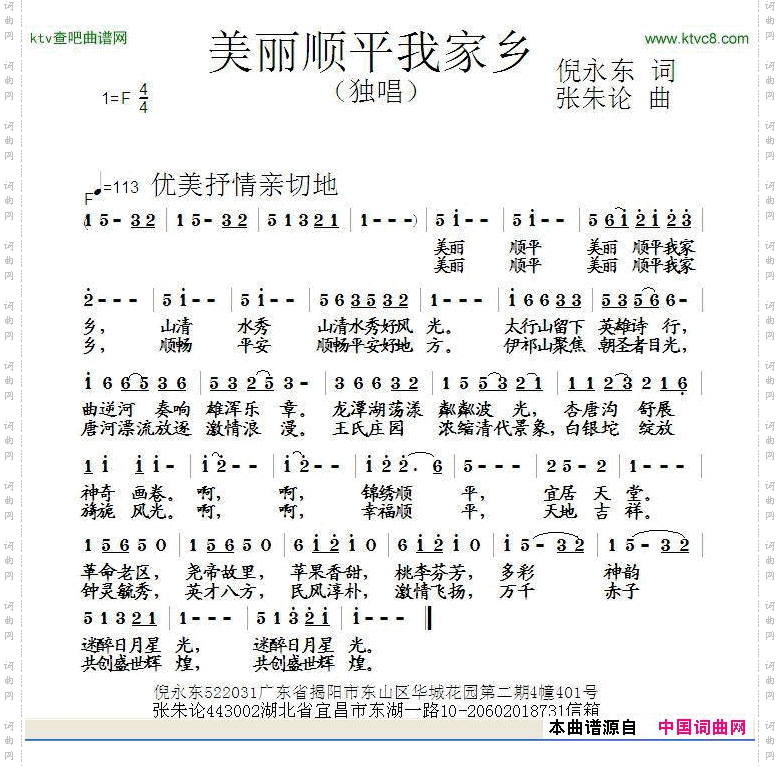 ktv查吧曲谱网
www.ktvc8.com
美丽顺平我家乡
（独唱）
倪永东 词
张朱论 曲
1=F 4/4
F ♩=113 优美抒情亲切地
(1 5- 32 | 1 5- 32 | 5 1321 | 1--- ) | 5 i-- | 5 i-- | 5 6i 2i 23 |
美丽 顺平 美丽 顺平我家
美丽 顺平 美丽 顺平我家
2--- | 5 i-- | 5 i-- | 56 35 32 | 1--- | i 6633 | 5356 6- |
乡， 山清 水秀 山清水秀好风 光。 太行山留下 英雄诗 行，
乡， 顺畅 平安 顺畅平安好地 方。 伊祁山聚焦 朝圣者目光，
曲逆河 奏响 雄浑乐 章。 龙潭湖荡漾 粼粼波 光， 杏唐沟 舒展
唐河漂流放逐 激情浪 漫。 王氏庄园 浓缩清代景象， 白银坨 绽放
神奇 画卷。 啊， 啊， 锦绣顺 平， 宜居 天 堂。
旖旎 风光。 啊， 啊， 幸福顺 平， 天地 吉 祥。
1 5650 | 1 5650 | 6 i2i0 | 6 2i i0 | i 5- 32 | 1 5- 32 |
革命老区， 尧帝故里， 苹果香甜， 桃李芬芳， 多彩 神韵
钟灵毓秀， 英才八方， 民风淳朴， 激情飞扬， 万千 赤子
5 1321 | 1--- | 5 132i | i--- ‖
迷醉日月星 光， 迷醉日月星 光。
共创盛世辉 煌， 共创盛世辉 煌。
倪永东522031广东省揭阳市东山区华城花园第二期4幢401号
张朱论443002湖北省宜昌市东湖一路10-20602018731信箱
本曲谱源自 中国词曲网